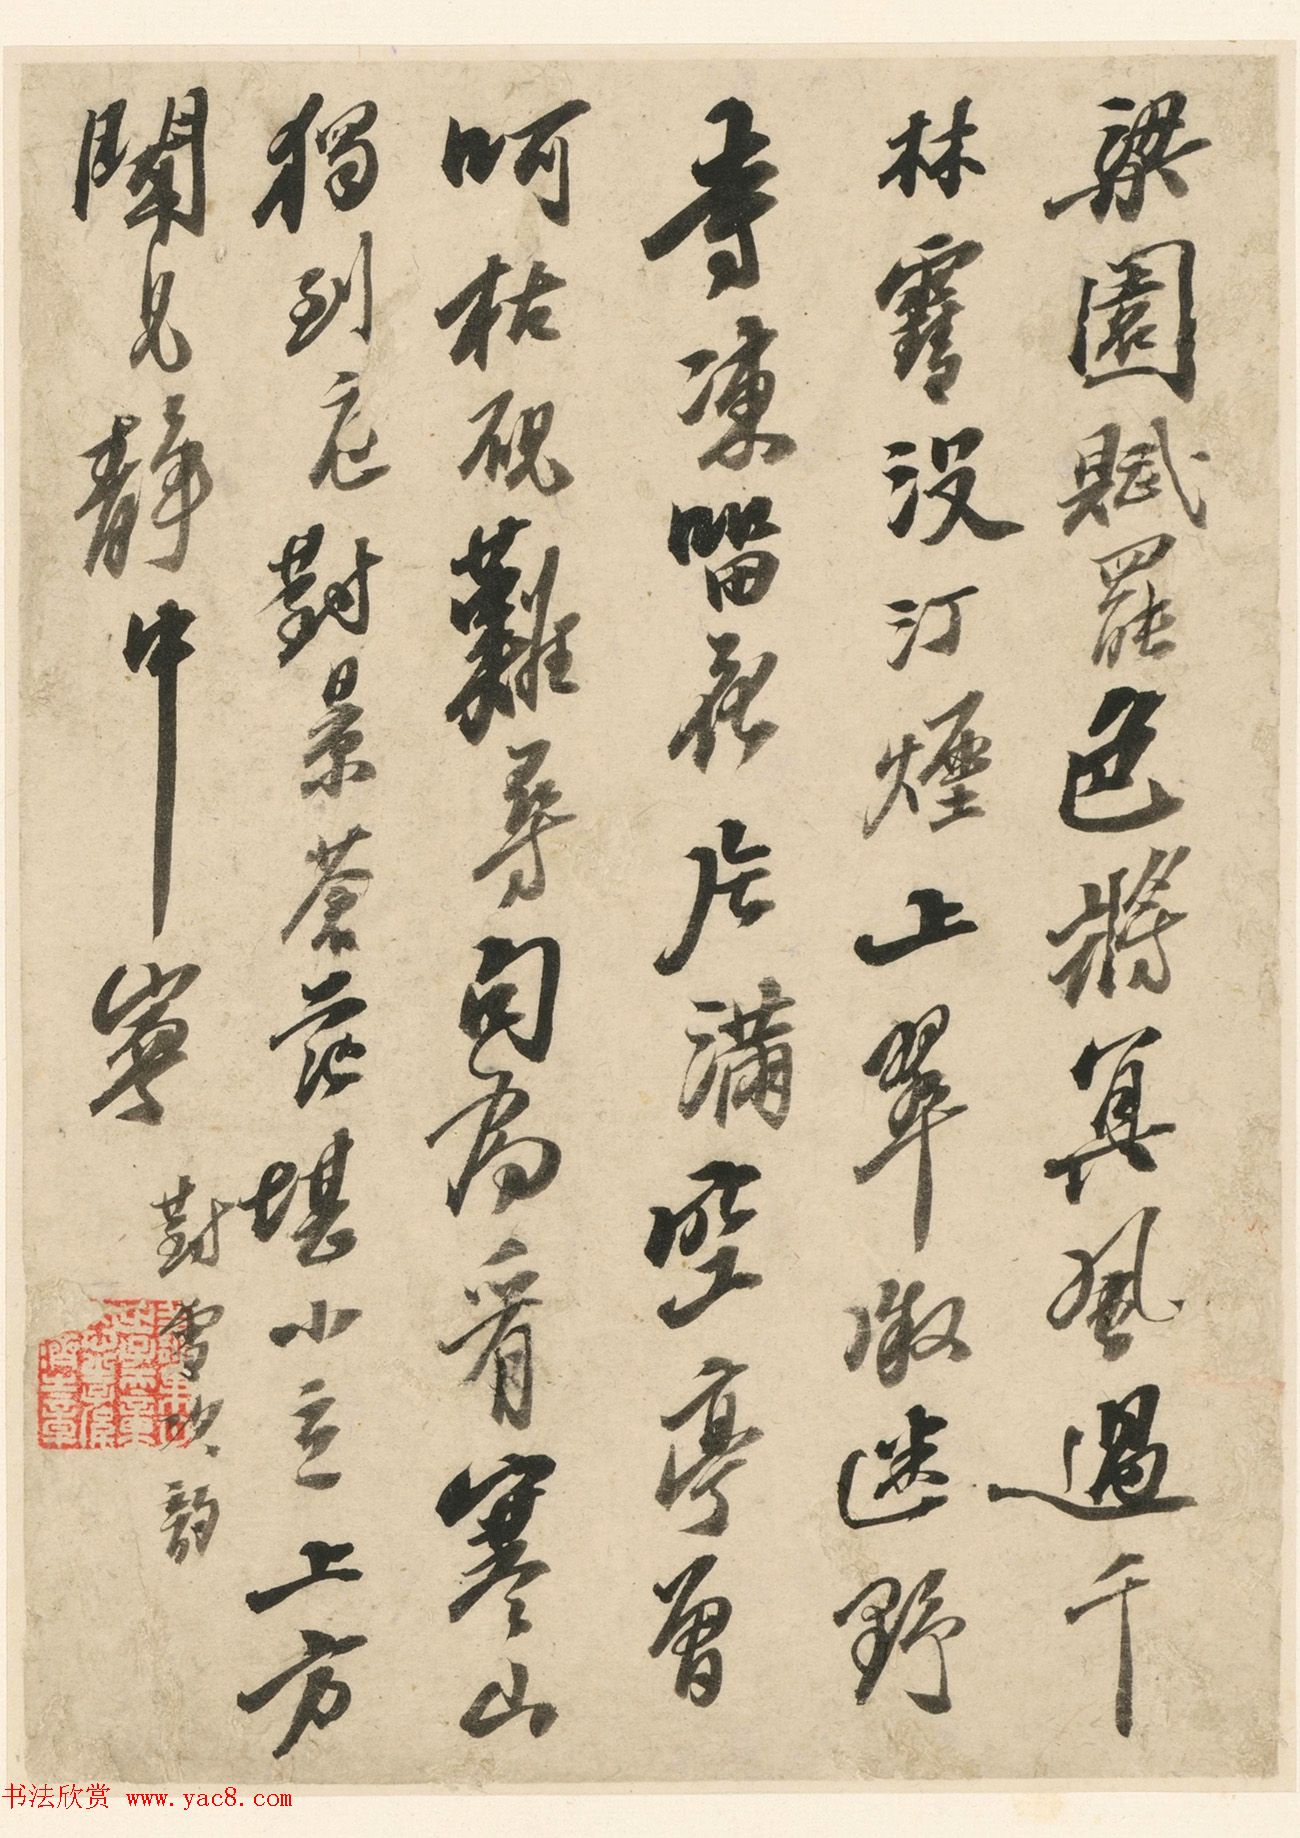 梁園賦罷色將真風過千
林霽沒汀煙上翠微迷野
寺凍留花片滿空亭曾
呵枯硯難尋句為看寒山
獨到庭對景蒼茫堪小立上方
闌見靜中寧
對雪次韻
书法欣赏 www.yac8.com